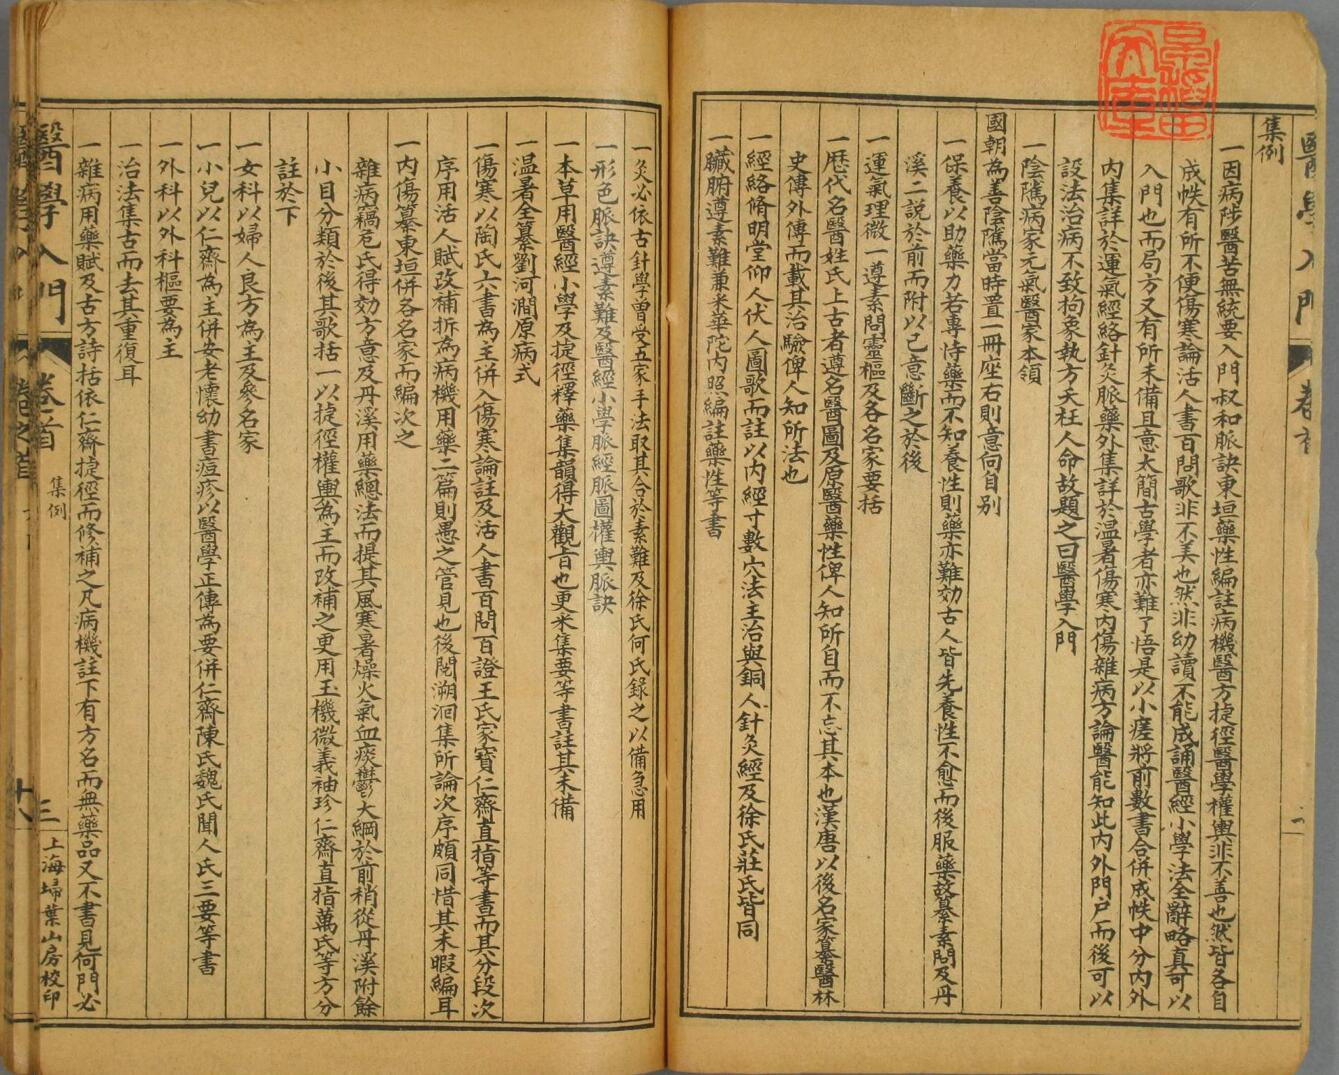 醫學入門 卷首
集例
一因病陟醫苦無統要入門叔和脈訣東垣藥性編註病機醫方捷徑醫學權輿非不善也然皆各自
成帙有所不便傷寒論活人書百問歌非不美也然非幼讀不能成誦醫經小學法全辭略真可以
入門也而局方又有所未備且意太簡古學者亦難了悟是以小瘥將前數書合併成帙中分內外
內集詳於運氣經絡針灸脈藥外集詳於溫暑傷寒內傷雜病方論醫能知此內外門戶而後可以
設法治病不致拘象執方夭枉人命故題之曰醫學入門
一陰隲病家元氣醫家本領
國朝為善陰隲當時置一冊座右則意向自別
一保養以助藥力若專恃藥而不知養性則藥亦難効古人皆先養性不愈而後服藥故纂素問及丹
溪二說於前而附以己意斷之於後
一運氣理微一遵素問靈樞及各名家要括
一歷代名醫姓氏上古者遵名醫圖及原醫藥性俾人知所自而不忘其本也漢唐以後名家纂醫林
史傳外傳而載其治驗俾人知所法也
一經絡脩明堂仰人伏人圖歌而註以內經寸數穴法主治與銅人針灸經及徐氏莊氏皆同
一臟腑遵素難兼米華陀內照編註藥性等書
一灸必依古針學曾受五家手法取其合於素難及徐氏何氏錄之以備急用
一形色脈訣遵素難及醫經小學脈經脈圖權輿脈訣
一本草用醫經小學及捷徑釋藥集韻得大觀旨也更采集要等書註其未備
一溫暑全纂劉河澗原病式
一傷寒以陶氏六書為主併入傷寒論註及活人書百問百證王氏家寶仁齋直指等書而其分段次
序用活人賦改補拆為病機用藥二篇則愚之管見也後閱溯洄集所論次序頗同惜其未暇編耳
一內傷纂東垣併各名家而編次之
雜病竊危氏得効方意及丹溪用藥總法而提其風寒暑燥火氣血痰鬱大綱於前稍從丹溪附餘
小目分類於後其歌括一以捷徑權輿為主而改補之更用玉機微義袖珍仁齋直指萬氏等方分
註於下
一女科以婦人良方為主及參名家
一小兒以仁齋為主併安老懷幼書痘疹以醫學正傳為要併仁齋陳氏魏氏聞人氏三要等書
一外科以外科樞要為主
一治法集古而去其重復耳
一雜病用藥賦及古方詩括依仁齋捷徑而修補之凡病機註下有方名而無藥品又不書見何門必
醫學入門 卷首 集例 三 上海埽葉山房校印